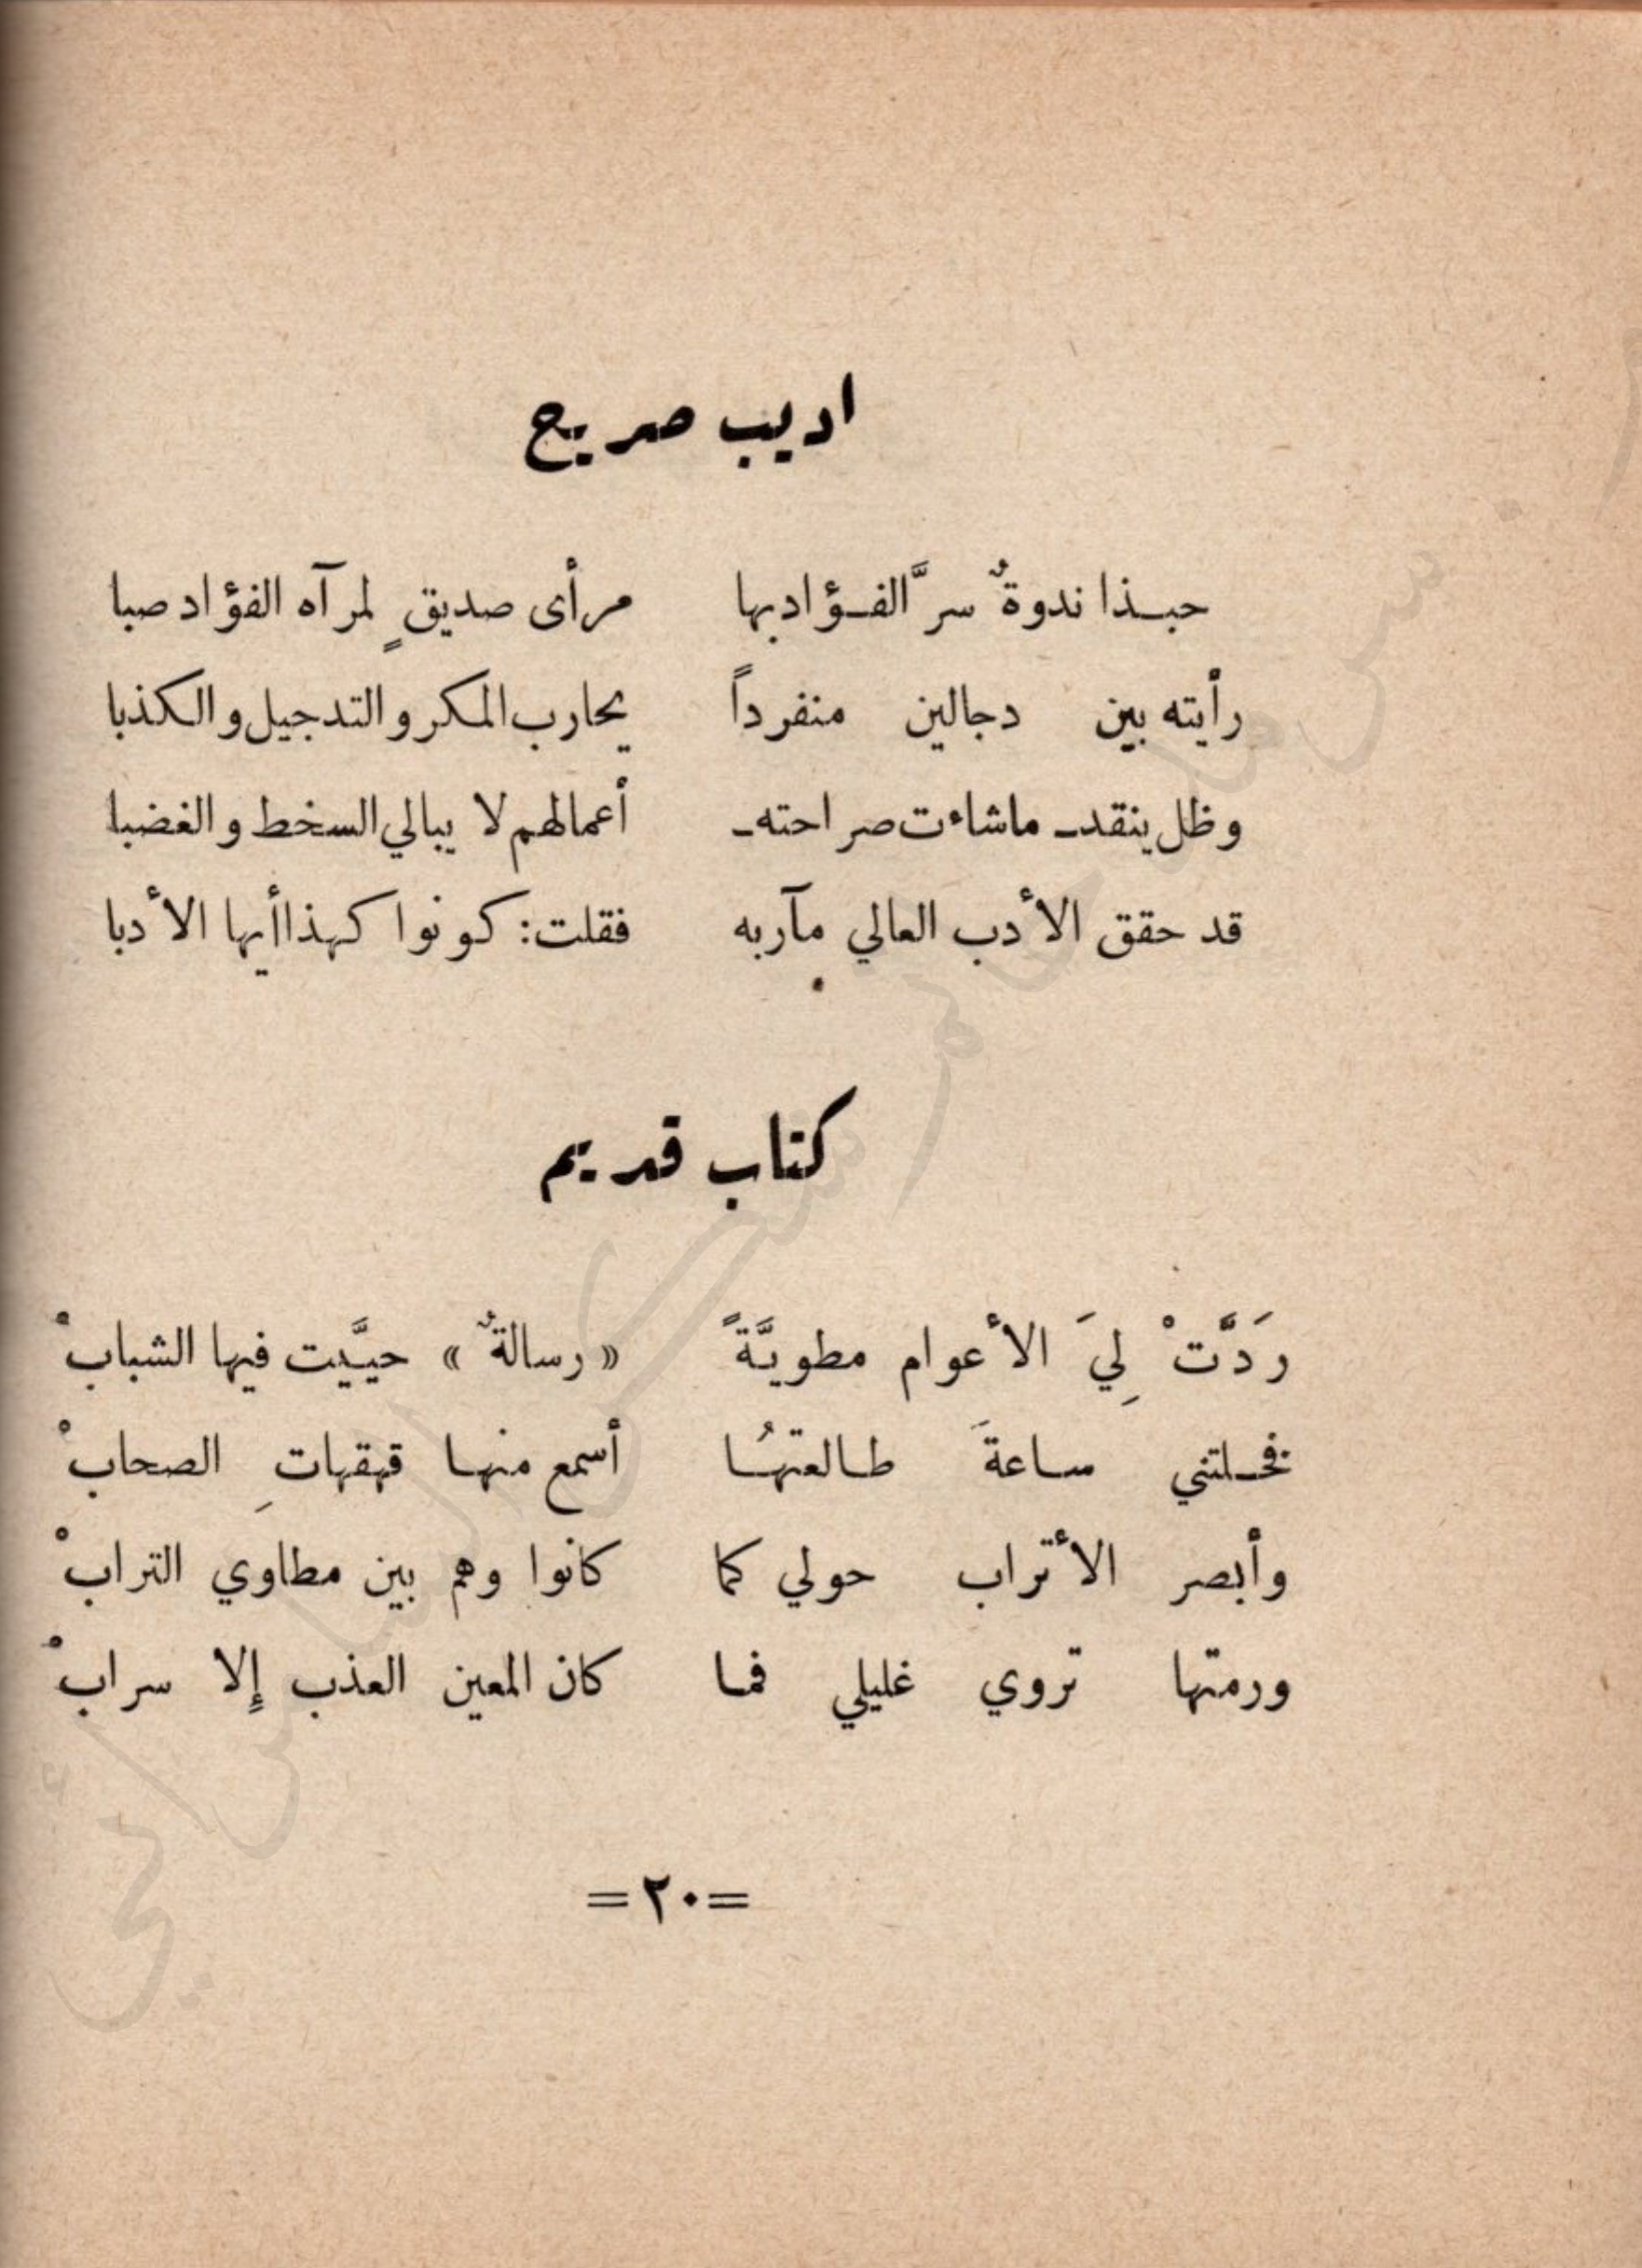 اديب صريح
حبذا ندوةٌ سرَّ الفؤاد بها مرأى صديقٍ لمرآه الفؤاد صبا
رأيته بين دجالين منفرداً يحارب المكر والتدجيل والكذبا
وظل ينقد ـ ماشاءت صراحته ـ أعمالهم لا يبالي السخط والغضبا
قد حقق الأدب العالي مآربه فقلت: كونوا كهذا أيها الأدبا
كتاب قديم
رَدَّتْ لِيَ الأعوام مطويَّةً « رسالةٌ » حييَّت فيها الشبابْ
فخلتني ساعةَ طالعتهُا أسمع منها قهقهاتِ الصحابْ
وأبصر الأتراب حولي كما كانوا وهم بين مطاوي الترابْ
ورمتها تروي غليلي فما كان المعين العذب إلا سرابْ
=٢٠=